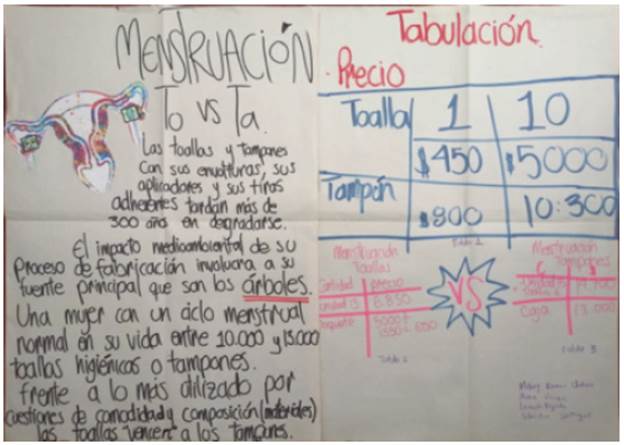 MENSTRUACIÓN
To vs Ta.
Las toallas y tampones
con sus envolturas, sus
aplicadores y sus tiras
adherentes tardan más de
300 años en degradarse.
El impacto medioambiental de su
proceso de fabricación involucra a su
fuente principal que son los árboles.
Una mujer con un ciclo menstrual
normal en su vida entre 10.000 y 15.000
toallas higiénicas o tampones.
frente a lo más utilizado por
cuestiones de comodidad y composición (materiales)
las toallas vencen a los tampones.
Tabulación.
Precio
Toalla 1 10
$450 $5000
Tampón
$900 10:300
Menstruación Toallas
Cantidad precio
unidad 13 5.850
paquete 5000
VS
Menstruación Tampones
Caja 13.000